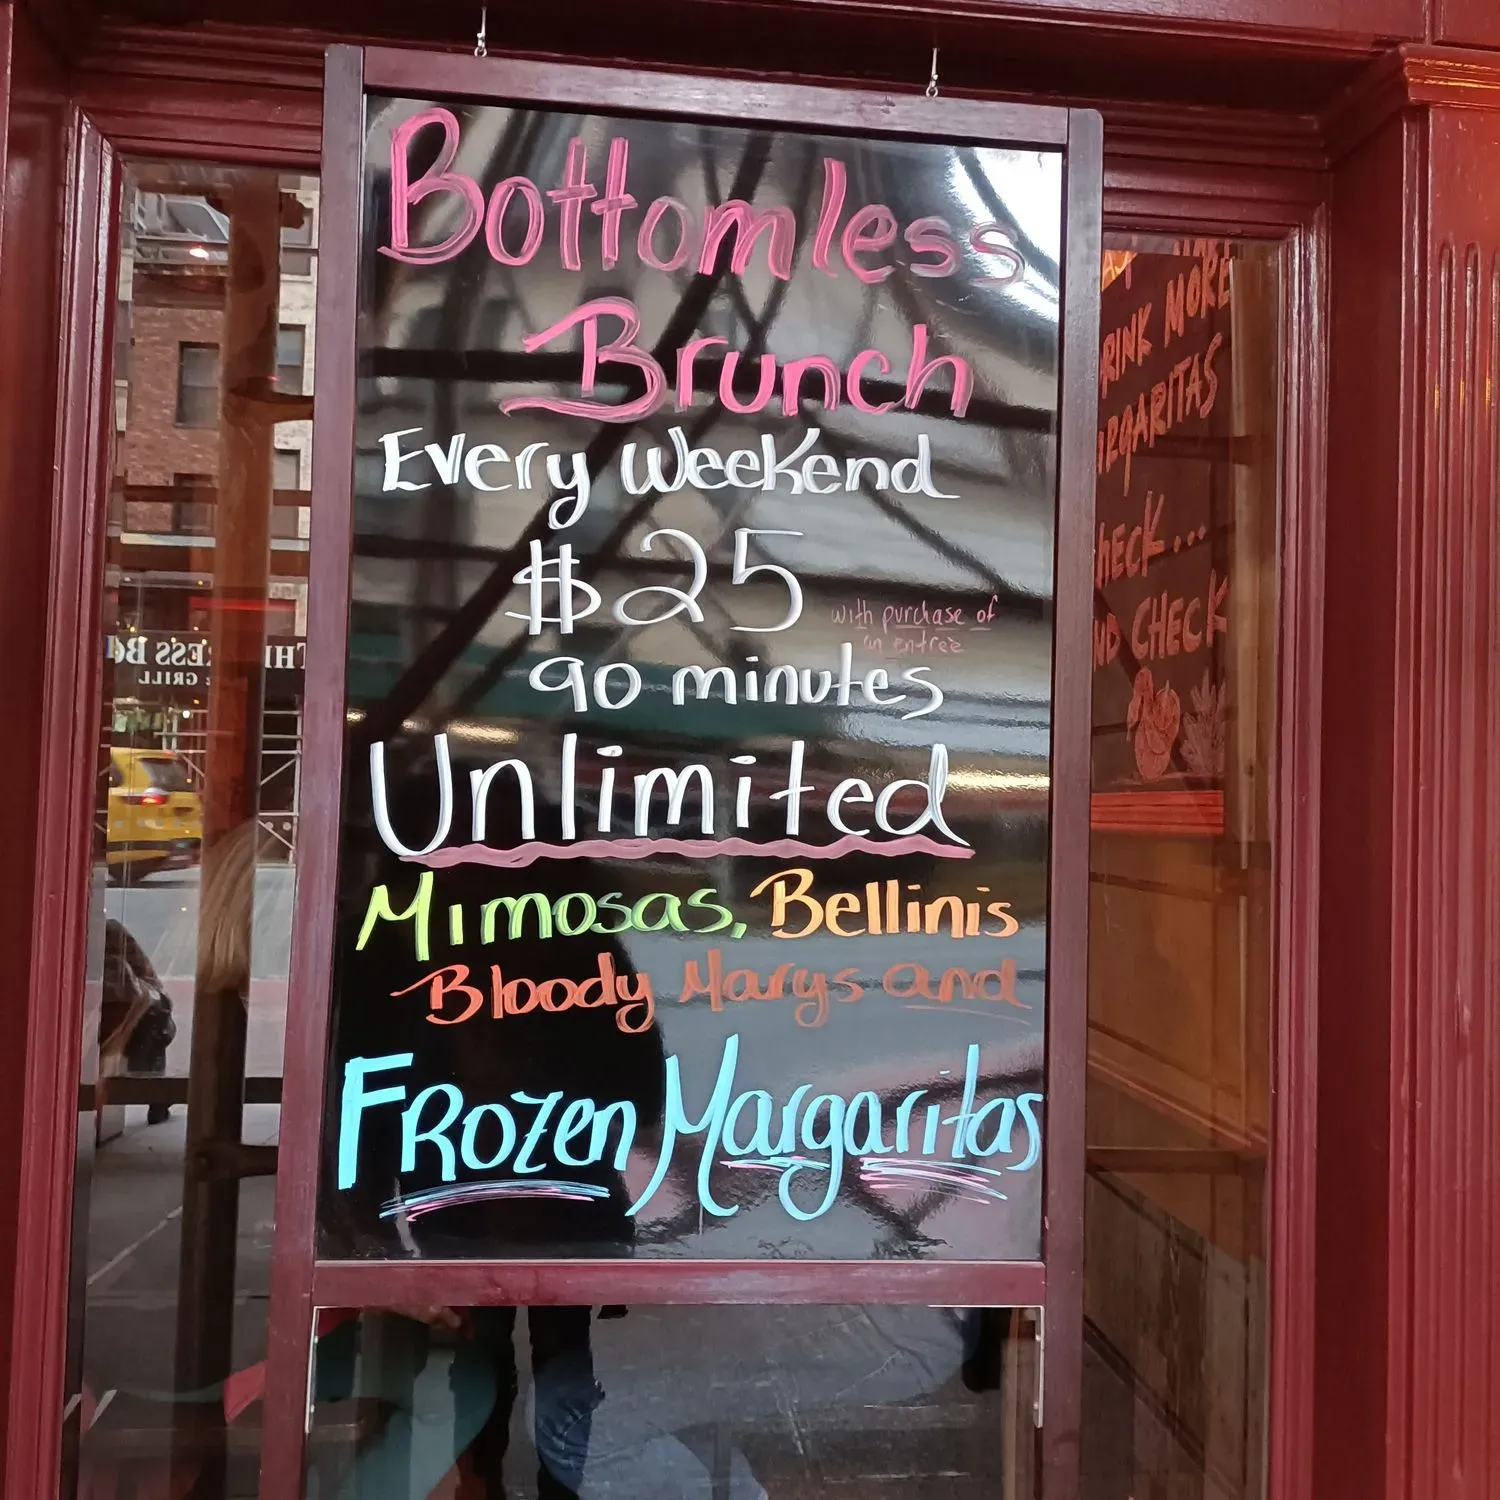 Bottomless
Brunch
Every Weekend
$25
with purchase of
an entrée
90 minutes
Unlimited
Mimosas, Bellinis
Bloody Marys and
Frozen Margaritas
MORE
MARGARITAS
CHECK...
CHECK
GRILL